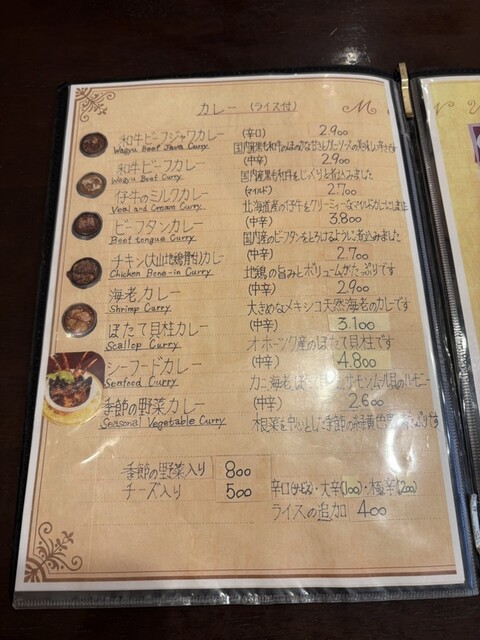 カレー (ライス付)
和牛ビーフジャワカレー (辛口) 2.900
Wagyu Beef Java Curry
和牛ビーフカレー (中辛) 2.900
Wagyu Beef Curry 国内産黒毛和牛をじっくり煮込みました
仔牛のミルクカレー (マイルド) 2.700
Veal and Cream Curry 北海道産の仔牛をクリーミィーなマイルドカレーにしました
ビーフタンカレー (中辛) 3.800
Beef tongue Curry 国内産のビーフタンをとろけるように煮込みました
チキン(大山地鶏骨付)カレー (中辛) 2.700
Chicken Bone-in Curry 地鶏の旨みとボリュームがたっぷりです
海老カレー (中辛) 2.900
Shrimp Curry 大きめなメキシコ天然海老のカレーです
ほたて貝柱カレー (中辛) 3.100
Scallop Curry オホーツク産のほたて貝柱です
シーフードカレー (中辛) 4.800
Seafood Curry カニ 海老 サーモン
季節の野菜カレー (中辛) 2.600
Seasonal Vegetable Curry 根菜を中心とした季節の
季節の野菜入り 800
チーズ入り 500 辛口(サービス)・大辛(100)・極辛(200)
ライスの追加 400